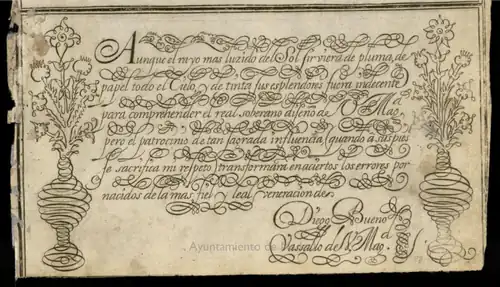 Aunque el rayo mas luzido del Sol sirviera de pluma, de
papel todo el Cielo, y de tinta sus esplendores fuera indecente
para comprehender el real soberano diseno de V. Mag.d
pero el patrocinio de tan sagrada influencia, quando a sus pies
se sacrifica mi respeto, transformará en aciertos los errores por
nacidos de la mas fiel y leal veneracion de
Diego Bueno
Vassallo de V. Mag.d
Ayuntamiento de